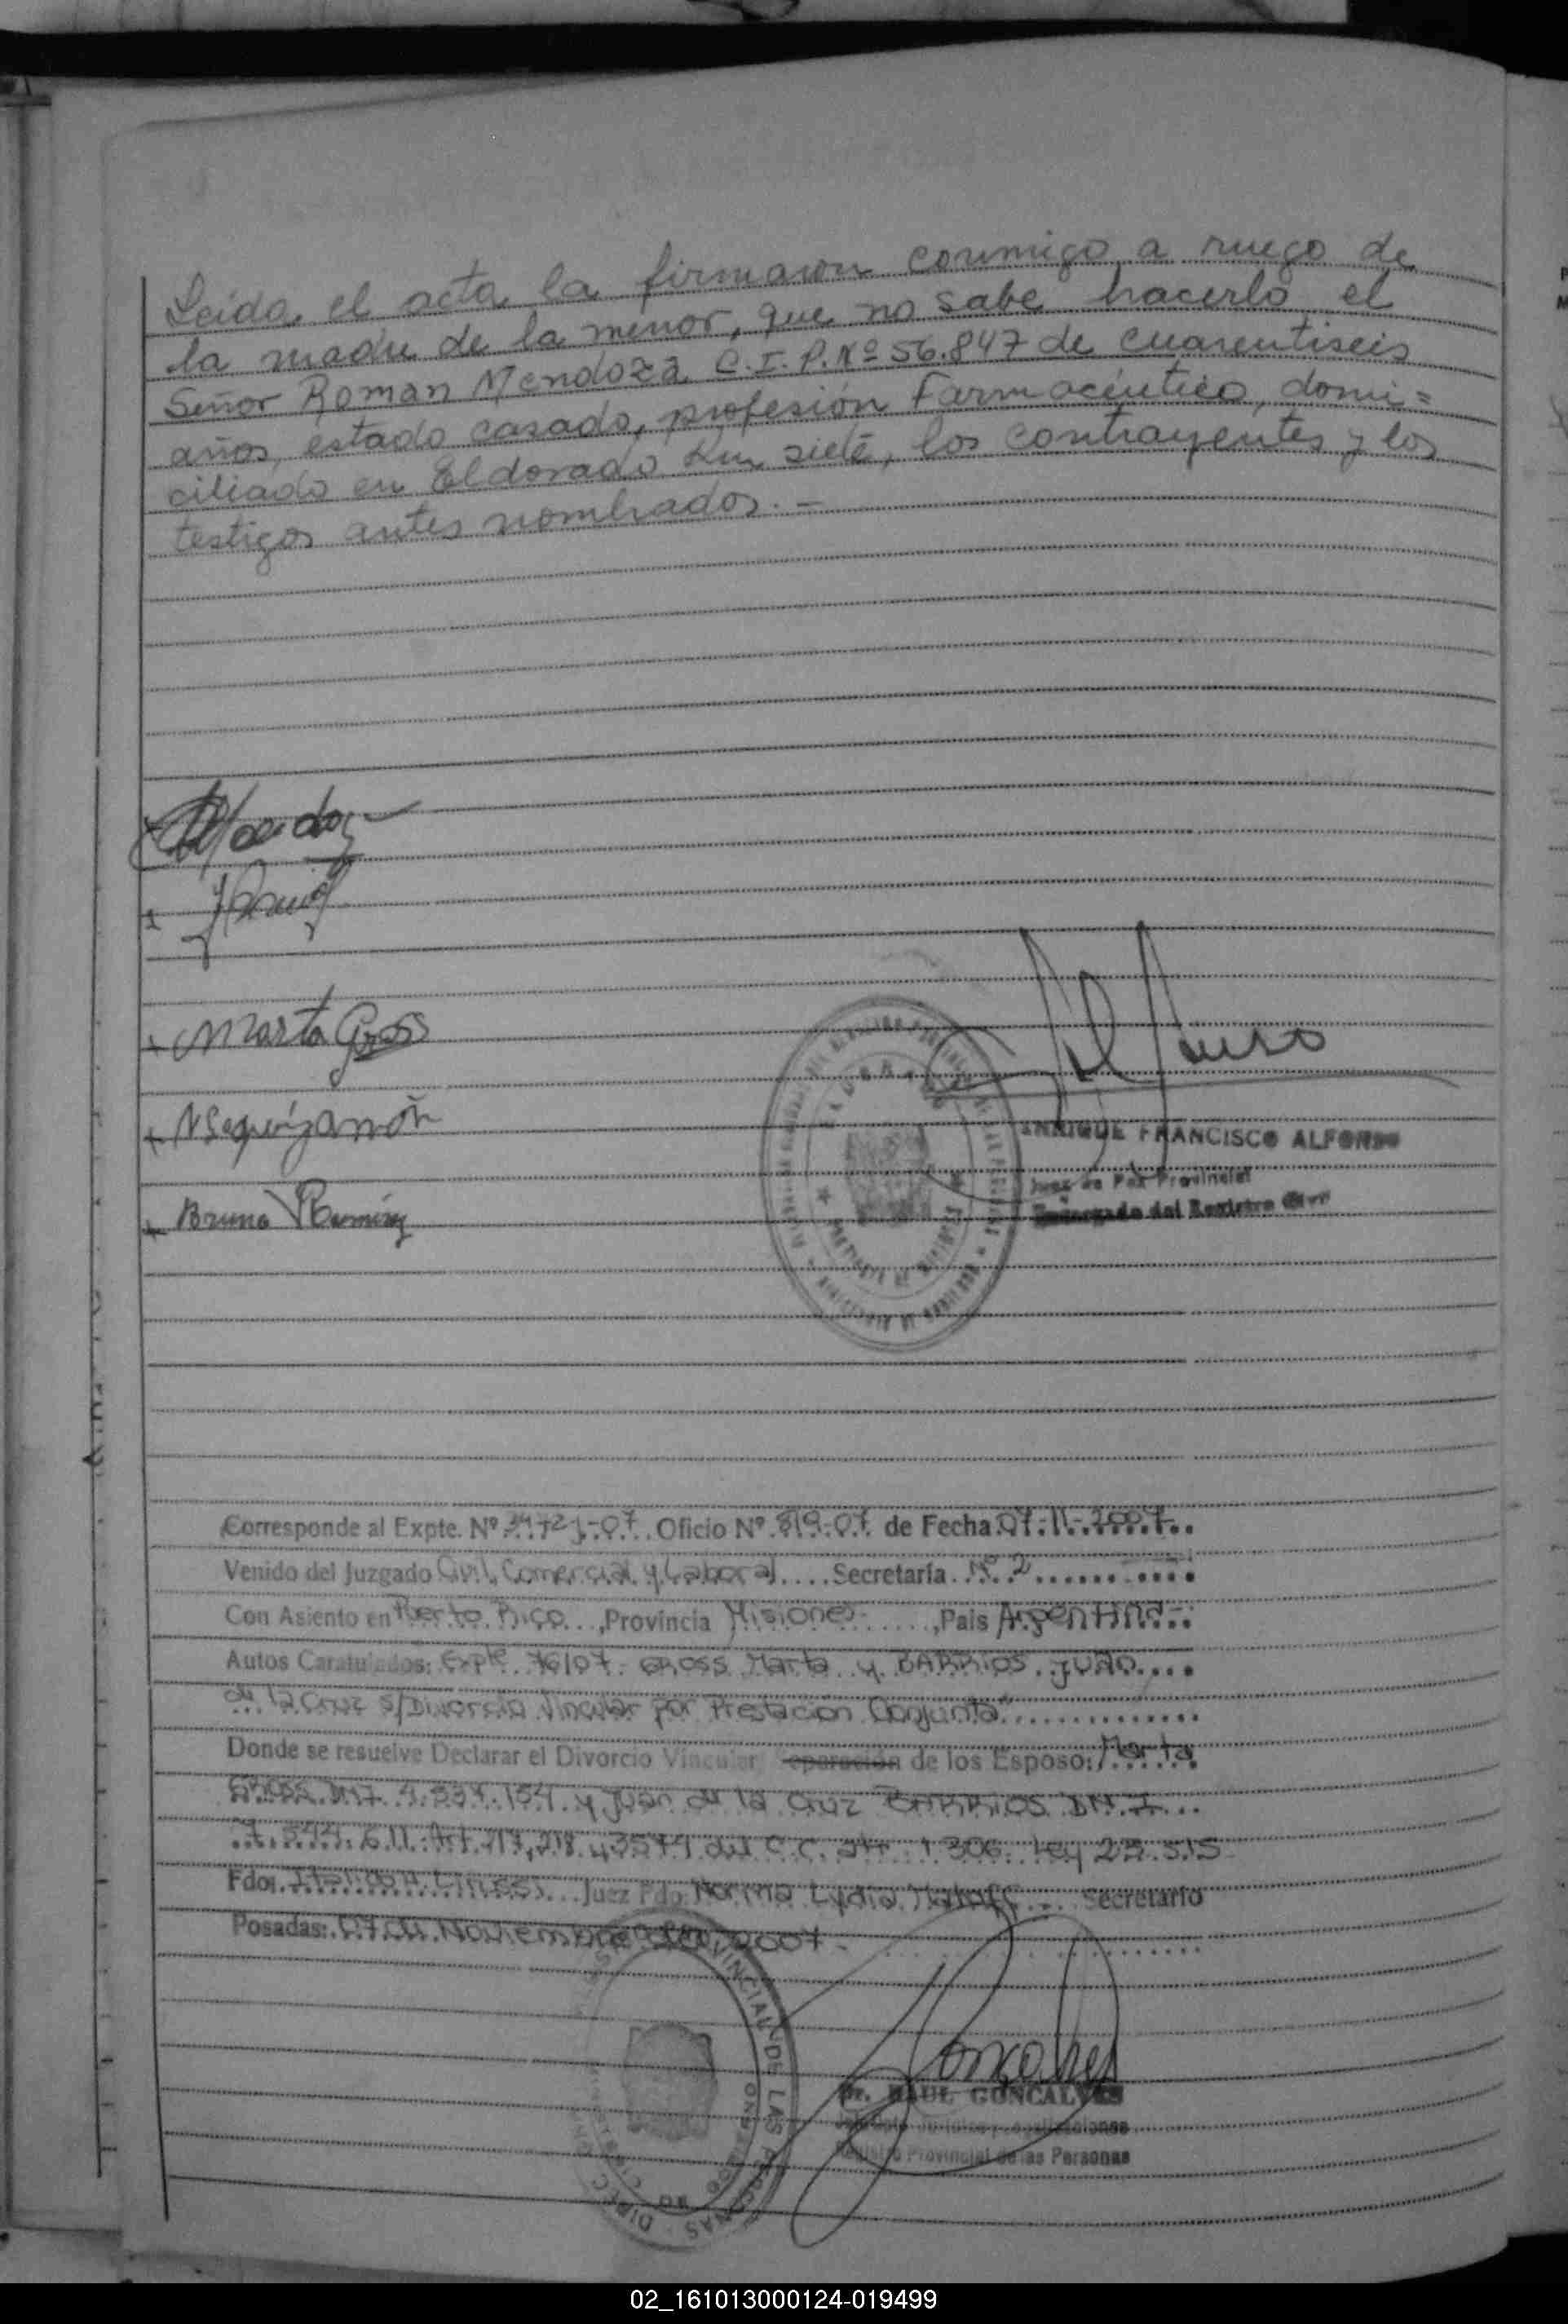 Leida el acta la firmaron conmigo a ruego de
la madre de la menor, que no sabe hacerlo el
Señor Roman Mendoza C.I.P. Nº 56.847 de cuarentiseis
años, estado casado, profesión Farmacéutico, domi=
ciliado en Eldorado Km siete, los contrayentes y los
testigos antes nombrados. -
Marta Gross
Bruno Ramírez
ENRIQUE FRANCISCO ALFONSO
Juez de Paz Provincial
Encargado del Registro Civil
Corresponde al Expte. Nº Oficio Nº 819-07 de Fecha 07-11-2007
Venido del Juzgado Civil, Comercial y Laboral Secretaría Nº 2
Con Asiento en Puerto Rico, Provincia Misiones, País Argentina
Autos Caratulados: Expte 76/07 - GROSS Marta y BARRIOS Juan
de la Cruz s/Divorcio Vincular por Prestacion Conjunta"
Donde se resuelve Declarar el Divorcio Vincular de los Esposo: Marta
Gross y Juan de la Cruz BARRIOS
Ley
Fdo: Juez Fdo: Norma Lydia Secretario
Posadas: 07 de Noviembre del 2007.
PROVINCIAL DE LAS PERSONAS
Dr. RAUL GONCALVES
Registro Provincial de las Personas
02_161013000124-019499